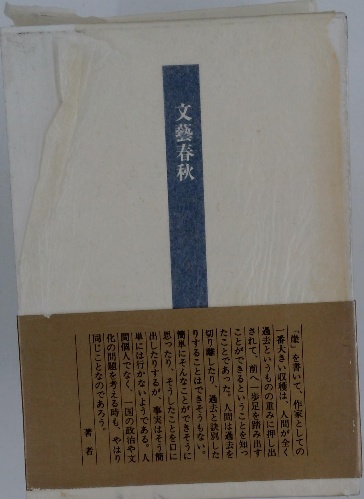 文藝春秋
『崖』を書いて、作家としての
一番大きい収穫は、人間が全く
過去というものの重みに押し出
されて、前へ一歩足を踏み出す
ことができるということを知っ
たことであった。人間は過去を
切り離したり、過去と訣別した
りすることはできそうもない。
簡単にそんなことができそうに
思ったり、そうしたことを口に
出したりするが、事実はそう簡
単には行かないようである。人
間個人でなく、一国の政治や文
化の問題を考える時も、やはり
同じことなのであろう。
著者